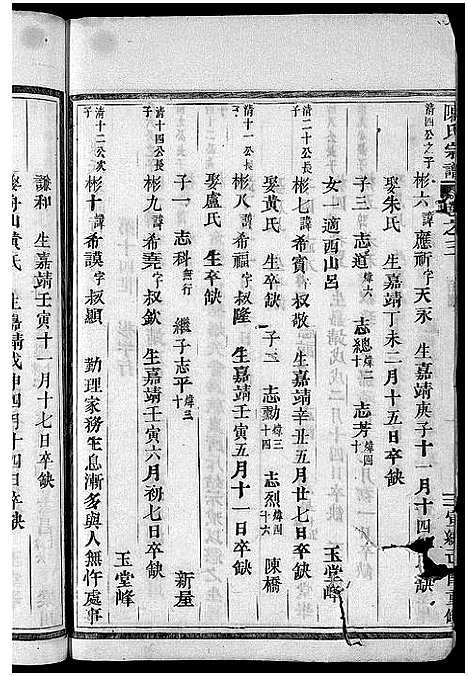 陳氏宗譜
卷之三
清四公之子 彬六 諱應祈字天永 生嘉靖庚子十一月十四
娶朱氏 生嘉靖丁未二月十五日卒缺
子三 志道 煒六 志總 煒二十 志芳 煒四十
女一適西山呂 玉堂峰
清二十公長子 彬七 諱希賓字叔敬 生嘉靖辛丑五月廿七日卒缺
娶黃氏 生卒缺 子二 志勳 煒三十四 志烈 煒四十六 陳橋
清十一公長子 彬八 諱希福字叔隆 生嘉靖壬寅五月十一日卒缺
娶盧氏 生卒缺
子一 志科 無行 繼子志平 煒三十 新屋
清十四公長子 彬九 諱希堯字叔欽 生嘉靖壬寅六月初七日卒缺
玉堂峰
清十二公次子 彬十 諱希謨字叔顯 勤理家務生息漸多與人無忤處事
謙和 生嘉靖壬寅十一月十七日卒缺
娶舟山黃氏 生嘉靖戊申四月十四日卒缺